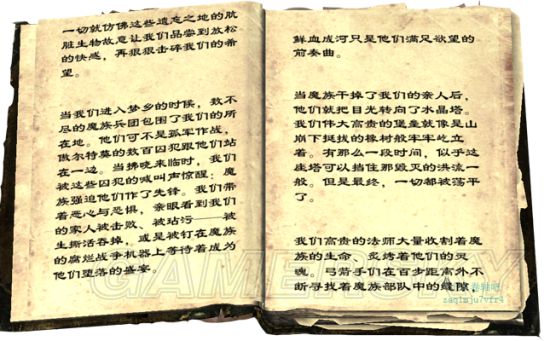 一切就仿佛这些遗忘之地的肮
脏生物故意让我们品尝到放松
的快感，再狠狠击碎我们的希
望。
当我们进入梦乡的时候，数不
尽的魔族兵团包围了我们的所
在地。他们可不是孤军作战，
傲尔特莫的数百囚犯跟他们站
在一边。当拂晓来临时，我们
被这些囚犯的喊叫声惊醒：魔
族强迫他们作了先锋。我们带
着恶心与恐惧，亲眼看到我们
的家人被击败、被玷污——被
生撕活吞掉，或是被钉在魔族
的腐烂战争机器上等待着成为
他们堕落的盛宴。
鲜血成河只是他们满足欲望的
前奏曲。
当魔族干掉了我们的亲人后，
他们就把目光转向了水晶塔。
我们伟大高贵的堡垒就像是山
崩下挺拔的橡树般牢牢屹立
着。有那么一段时间，似乎这
座塔可以挡住那毁灭的洪流一
般。但是最终，一切都被荡平
了。
我们高贵的法师大量收割着魔
族的生命，炙烤着他们的灵
魂。弓箭手们在百步距离外不
断寻找着魔族部队中的缝隙，
GAMERSKY
zaqtmju7vfr4